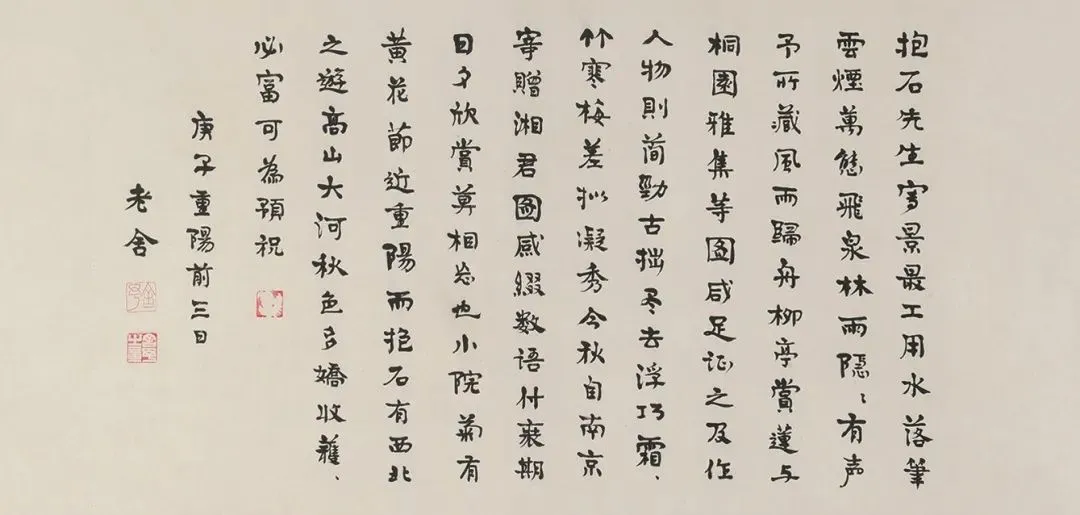 抱石先生寫景最工用水落筆
雲煙萬態飛泉林雨隱〻有声
予所藏風雨歸舟柳亭賞蓮与
桐園雅集等圖咸足证之及作
人物則简勁古拙尽去浮巧霜、
竹寒梅差拟凝秀今秋自南京
寄贈湘君圖感綴数语什襲期
日夕欣賞莫相忘也小院菊有
黃花節近重陽而抱石有西北
之遊高山大河秋色多嬌收穫、
必富可為預祝
庚子重陽前三日
老舍